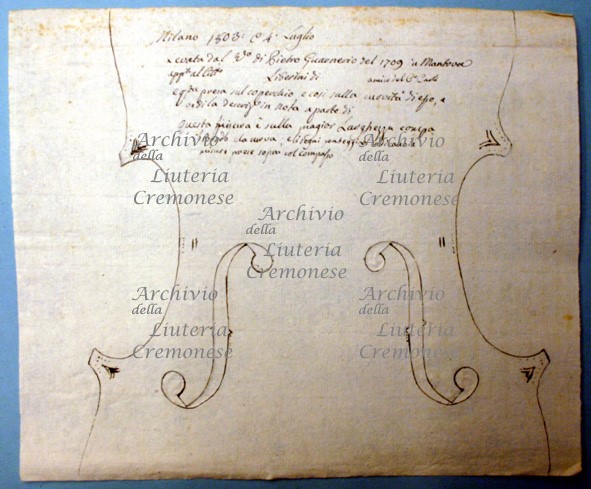 Milano 1808: a 4 Luglio
cavata dal Vo. di Pietro Guarnerio del 1709 a Mantova
appo. al Citto. Liberini di amico del Ce. Carlo
e qta. presa sul coperchio, e così sulla curvità di esso, e
vedi la descrizn. in nota a parte di
questa misura è sulla magior Larghezza
misure prese sopra col Compasso
Archivio
della
Liuteria
Cremonese
Archivio
della
Liuteria
Cremonese
Archivio
della
Liuteria
Cremonese
Archivio
della
Liuteria
Cremonese
Archivio
della
Liuteria
Cremonese